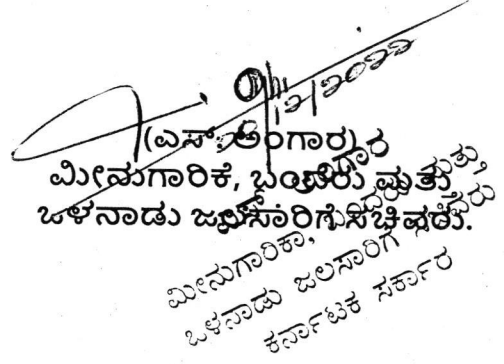 (ಎಸ್. ಅಂಗಾರ)
ಮೀನುಗಾರಿಕೆ, ಬಂದರು ಮತ್ತು
ಒಳನಾಡು ಜಲಸಾರಿಗೆ ಸಚಿವರು.
ಮೀನುಗಾರಿಕಾ, ಬಂದರು ಮತ್ತು
ಒಳನಾಡು ಜಲಸಾರಿಗೆ ಸಚಿವರು
ಕರ್ನಾಟಕ ಸರ್ಕಾರ